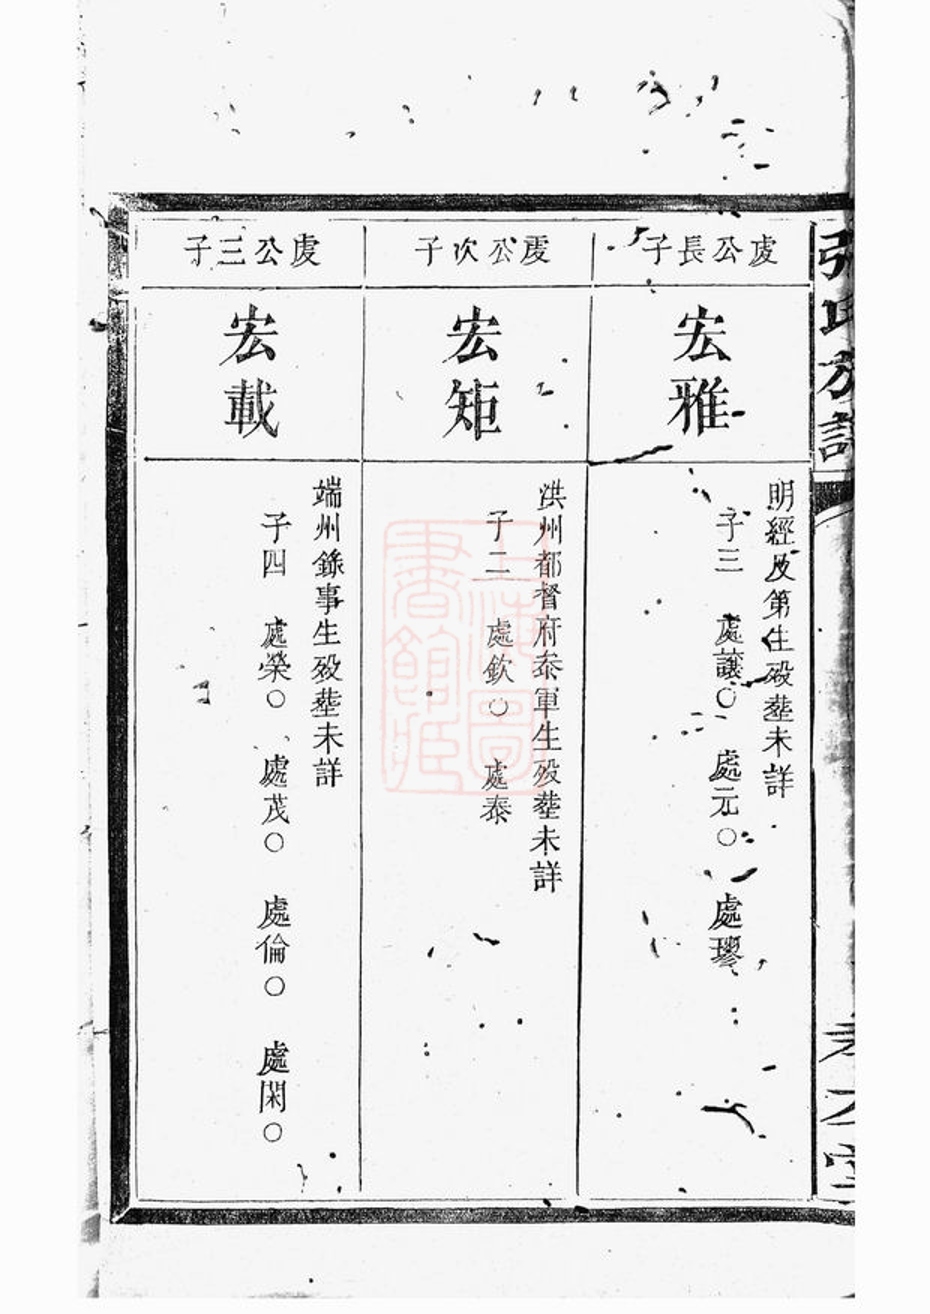 張氏族譜
孝友堂
虔公長子
宏雅
明經及第生殁塟未詳
子三 處讓○ 處元○ 處璆
虔公次子
宏矩
洪州都督府叅軍生殁塟未詳
子二 處欽○ 處泰
虔公三子
宏載
端州錄事生殁塟未詳
子四 處榮○ 處茂○ 處倫○ 處閑○
上海圖書館藏